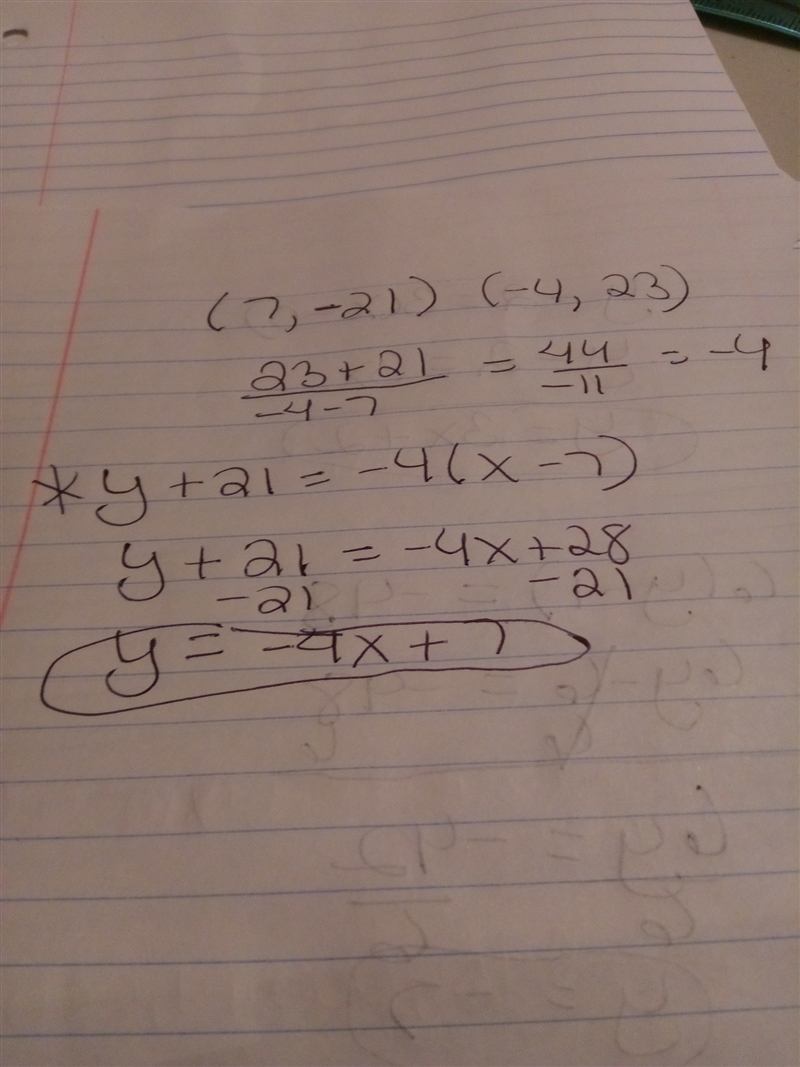 (7, -21) (-4, 23)
23 + 21 / -4 - 7 = 44 / -11 = -4
* y + 21 = -4(x - 7)
y + 21 = -4x + 28
-21 -21
y = -4x + 7